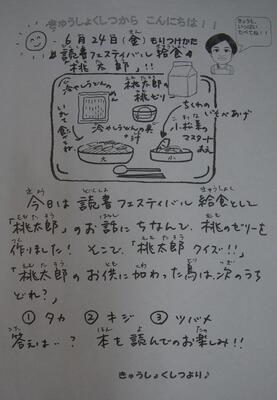 きゅうしょくしつから こんにちは!!
きょうも、
いっぱい
たべてね!!
6月24日(金)もりつけかた
読書フェスティバル給食
「桃太郎」!!
冷やしうどんの
つゆ
桃太郎の
桃ゼリー
ちくわの
いそべあげ
いれて食べてね
冷やしうどんの具
小松菜の
マスタード
あえ
大
小
今日は読書フェスティバル給食として
「桃太郎」のお話にちなんで、桃のゼリーを
作りました! そこで、「桃太郎クイズ!!」
「桃太郎のお供に加わった鳥は、次のうち
どれ?」
①タカ ②キジ ③ツバメ
答えは…? 本を読んでのお楽しみ!!
きゅうしょくしつより♪